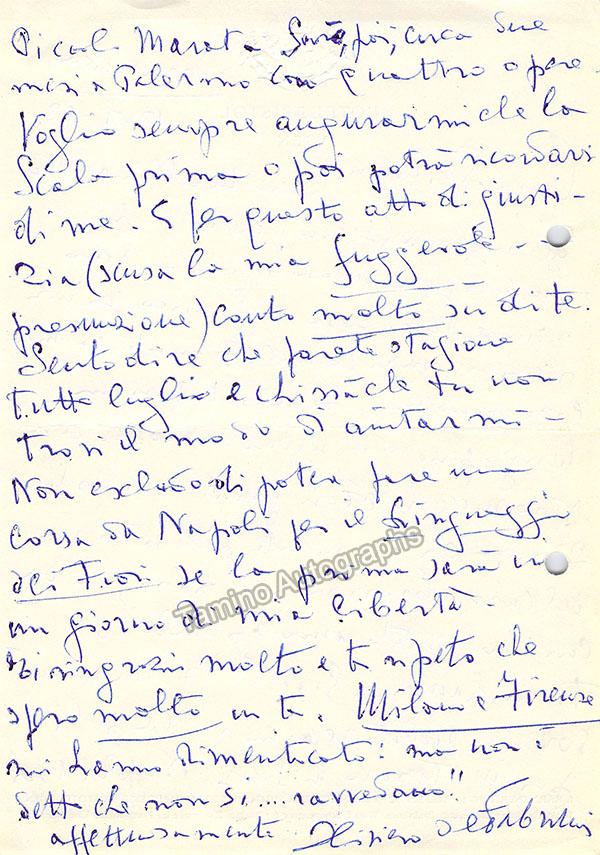 Piccolo Marat. Sarò, poi, circa due
mesi a Palermo con quattro opere.
Voglio sempre augurarmi che la
Scala prima o poi potrà ricordarsi
di me. E per questo atto di giusti-
zia (scusa la mia
presunzione) conto molto su di te.
Sento dire che farete stagione
tutto luglio e chissà che tu non
trovi il modo di aiutarmi -
Non escludo di poter fare una
corsa da Napoli per il Linguaggio
dei Fiori se la prima sarà in
un giorno di mia libertà -
Ti ringrazio molto e ti ripeto che
spero molto in te. Milano e Firenze
mi hanno dimenticato: ma non è
detto che non si .... ravvedano!!
affettuosamente Oliviero De Fabritiis
Tamino Autographs